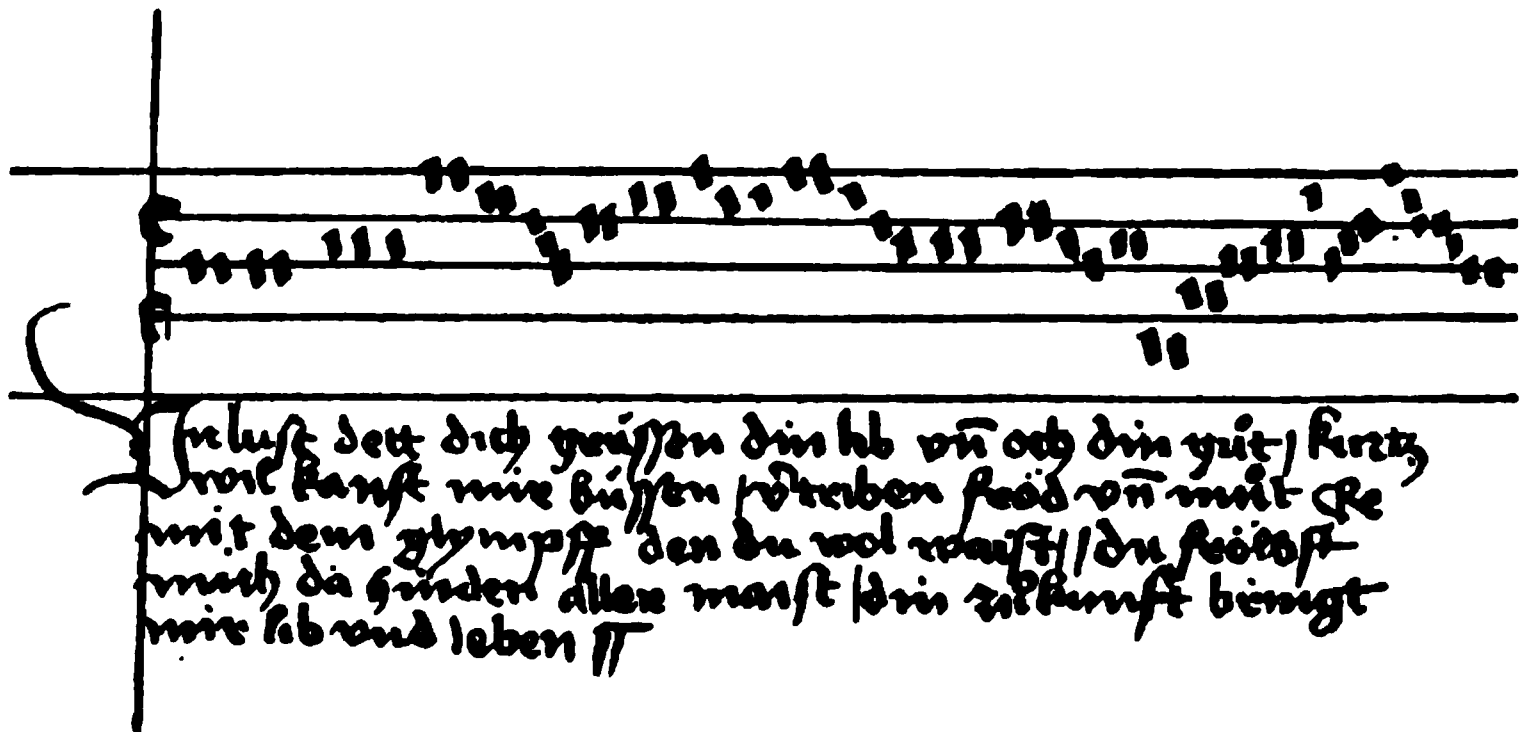 In lust dett dich grüssen din lib vn̄ och din guͦt / kurtz
wil kanst mir büssen / v̄triben froͤd vn̄ muͦt
mit dem glympff den du wol waist // du
mich da hinden aller maist / din zuͦkunfft bringt
mir lib vnd leben